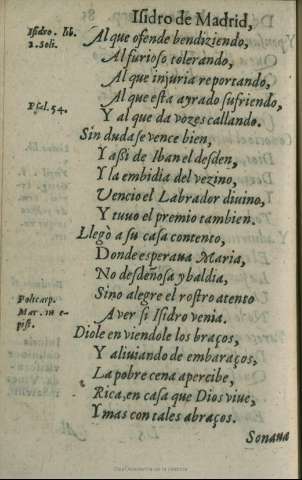 Isidro de Madrid,
Isidro. lib.
2. Soli.
Al que ofende bendiziendo,
Al furioso tolerando,
Al que injuria reportando,
Al que esta ayrado sufriendo,
Psal. 54.
Y al que da vozes callando.
Sin duda se vence bien,
Y assi de Iban el desden,
Y la embidia del vezino,
Vencio el Labrador diuino,
Y tuuo el premio tambien.
Llegò a su casa contento,
Donde esperaua Maria,
No desdeñosa y baldia,
Policarp.
Mar. in e-
pist.
Sino alegre el rostro atento
A ver si Isidro venia.
Diole en viendole los braços,
Y aliuiando de embaraços,
La pobre cena apercibe,
Rica, en casa que Dios viue,
Y mas con tales abraços.
Sonaua